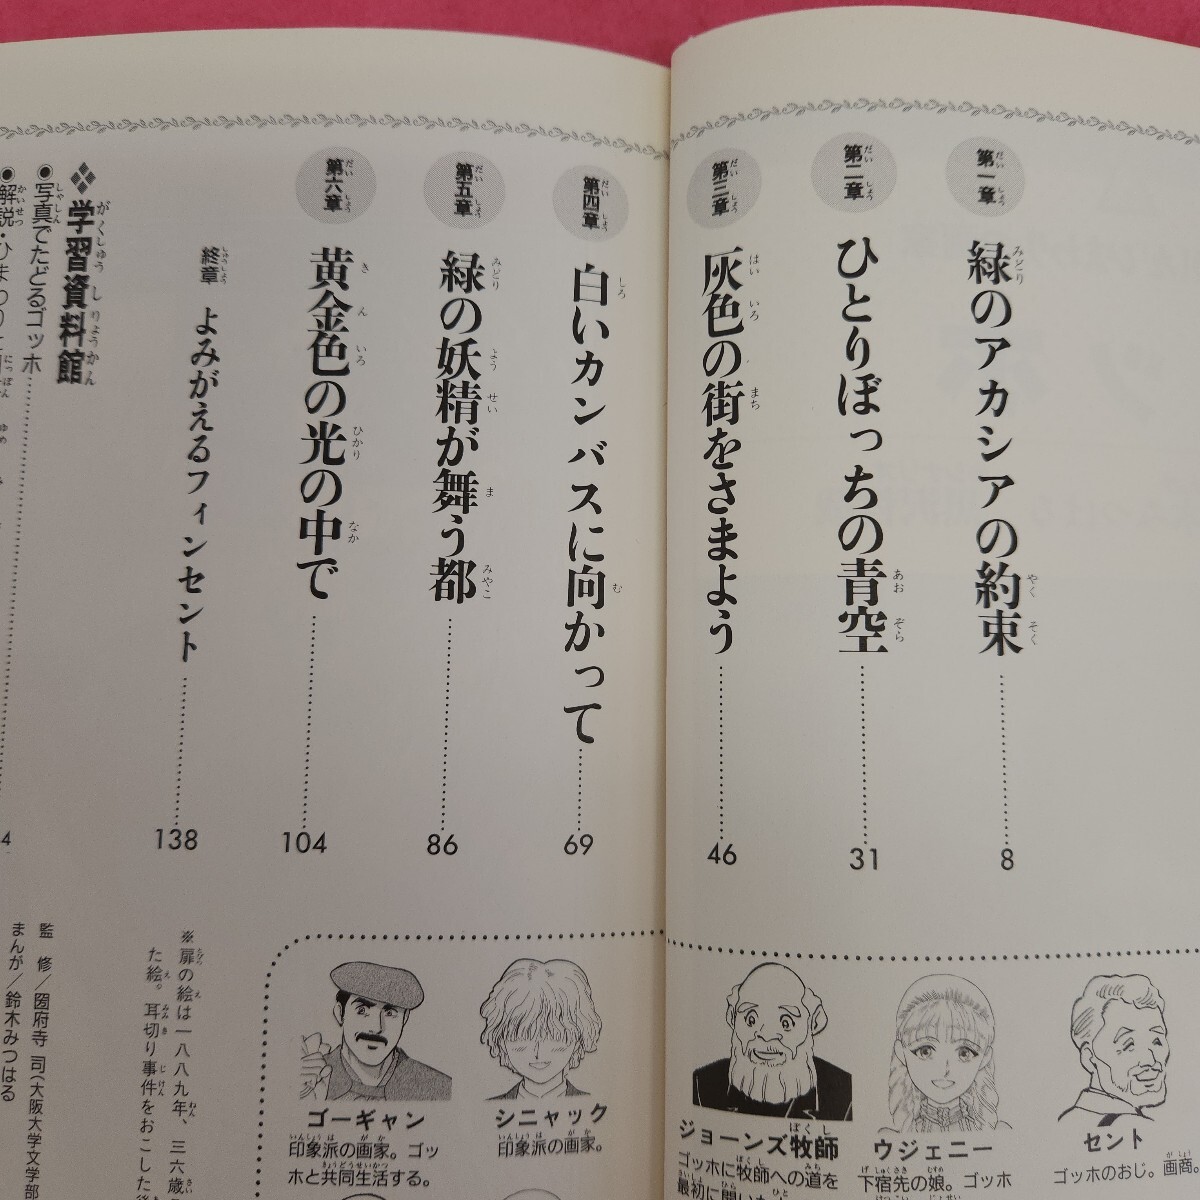 第一章
緑のアカシアの約束
8
第二章
ひとりぼっちの青空
31
第三章
灰色の街をさまよう
46
第四章
白いカンバスに向かって
69
第五章
緑の妖精が舞う都
86
第六章
黄金色の光の中で
104
終章 よみがえるフィンセント
138
学習資料館
●写真でたどるゴッホ
●解説・ひまわりと
4
セント
ゴッホのおじ。画商。
ウジェニー
下宿先の娘。ゴッホ
ジョーンズ牧師
ゴッホに牧師への道を
最初に開いた
シニャック
印象派の画家。
ゴーギャン
印象派の画家。ゴッ
ホと共同生活する。
※扉の絵は一八八九年、三六歳
た絵。耳切り事件をおこした後
監 修/圀府寺 司(大阪大学文学部
まんが/鈴木みつはる